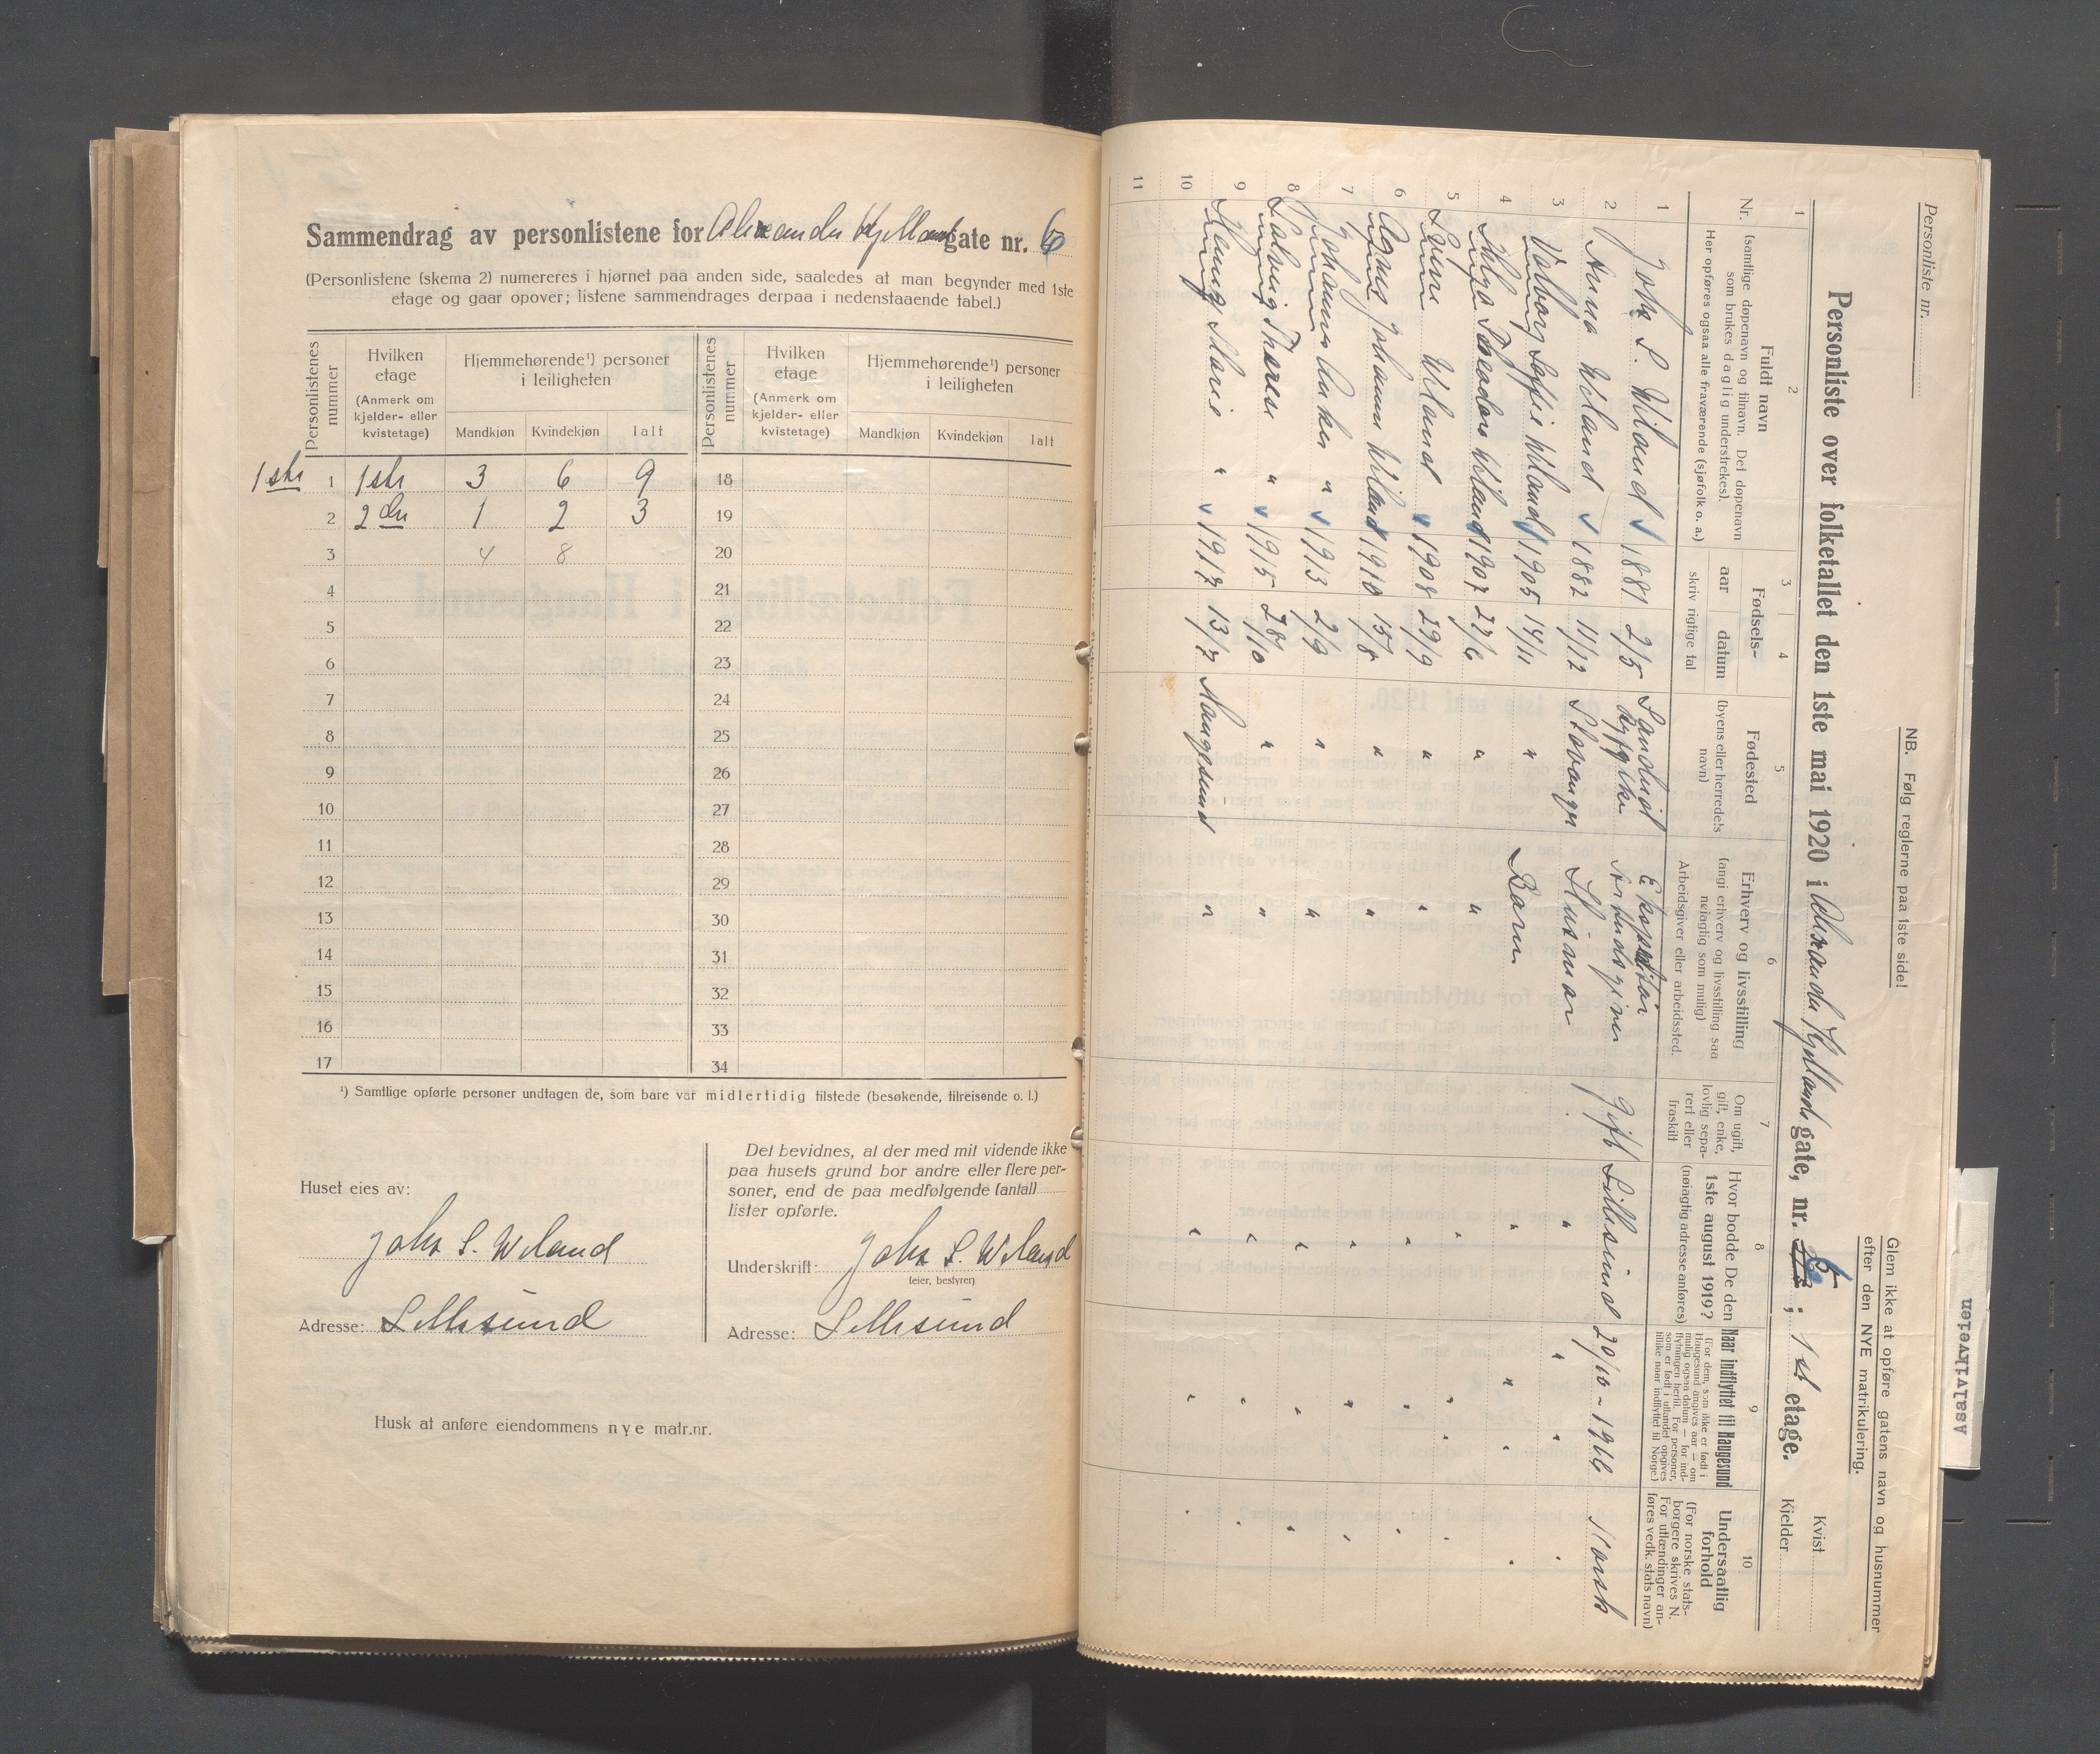 Sammendrag av personlistene for Alexander Kjelland gate nr. 6
(Personlistene (skema 2) numereres i hjørnet paa anden side, saaledes at man begynder med 1ste
etage og gaar opover; listene sammendrages derpaa i nedenstaaende tabel.)
Personlistenes nummer
Hvilken etage (Anmerk om kjelder- eller kvistetage)
Hjemmehørende¹) personer i leiligheten
Mandkjøn Kvindekjøn Ialt
Personlistenes nummer
Hvilken etage (Anmerk om kjelder- eller kvistetage)
Hjemmehørende¹) personer i leiligheten
Mandkjøn Kvindekjøn Ialt
1ste 1 1ste 3 6 9 18
2 2den 1 2 3 19
3 4 8 20
4 21
5 22
6 23
7 24
8 25
9 26
10 27
11 28
12 29
13 30
14 31
15 32
16 33
17 34
¹) Samtlige opførte personer undtagen de, som bare var midlertidig tilstede (besøkende, tilreisende o. l.)
Huset eies av:
Johs S. Wiland
Adresse: Lillesund
Det bevidnes, at der med mit vidende ikke
paa husets grund bor andre eller flere per-
soner, end de paa medfølgende (antal)
lister opførte.
Underskrift: Johs S. Wiland
(eier, bestyrer)
Adresse: Lillesund
Husk at anføre eiendommens nye matr.nr.
Personliste nr.
NB. Følg reglerne paa 1ste side!
Glem ikke at opføre gatens navn og husnummer
efter den NYE matrikulering.
Personliste over folketallet den 1ste mai 1920 i Alexander Kjellands gate, nr. 6; 1ste etage.
Kvist
Kjelder
1 2 3 4 5 6 7 8 9 10
Nr.
Fuldt navn
(samtlige døpenavn og tilnavn. Det døpenavn
som brukes daglig understrekes).
Her opføres ogsaa alle fraværende (sjøfolk o. a.)
Fødsels-
aar datum
skriv rigtige tal
Fødested
(byens eller herredets
navn)
Erhverv og livsstilling
(angi erhverv og livsstilling saa
nøiaglig som mulig)
Arbeidsgiver eller arbeidssted.
Om ugift,
gift, enke,
lovlig sepa-
rert eller
fraskilt
Hvor bodde De den
1ste august 1919?
(nøiagtig adresse anføres)
Naar indflyttet til Haugesund
(For dem, som ikke er født i
Haugesund angives aar — om
mulig ogsaa datum — for ind-
flytningen hertil. For personer,
som er født i utlandet opgives
tillike naar indflyttet til Norge)
Undersaatlig
forhold
(For norske stats-
borgere skrives N.
For utlændinger an-
føres vedk. stats navn)
1 Johs S. Wiland 1881 2/5 Sandeid Ryfylke Ekspeditør Gift Lillesund 20/10-1916 Norsk
2 Anna Wiland 1882 11/12 Stavanger Husmor " " "
3 Valborg Soffie Wiland 1905 14/11 " Barn " " "
4 Helga Theodora Wiland 1907 27/6 " " " " "
5 Wiland 1908 29/9 " " " " "
6 Agnes Johanne Wiland 1910 15/8 " " " " "
7 Johannes " 1913 2/9 " " " " "
8 Solveig Therese " 1915 28/10 " " " " "
9 Henny Marie " 1917 13/7 Haugesund " " " "
10
11
Asalvikveien